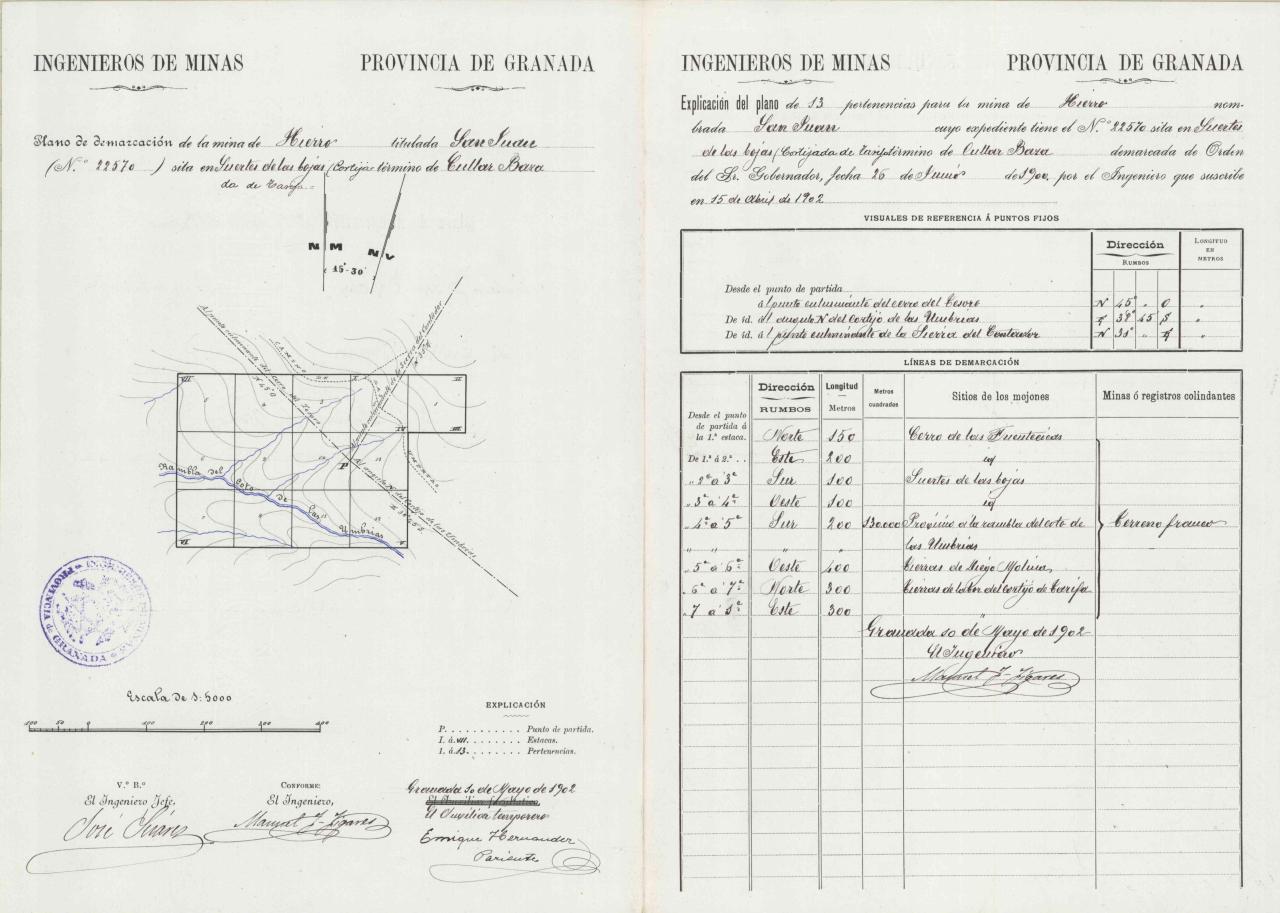 INGENIEROS DE MINAS PROVINCIA DE GRANADA
Plano de demarcación de la mina de Hierro titulada San Juan
(N.º 22570) sita en Suertes de las hojas (Cortija- término de Cullar Baza
da de Tarifa=
N M N V
15º-30'
Al punto culminante del cerro del Tesoro
N 45 O
Al punto culminante de la Sierra del Contador
Camino
VII I II
IV III
P
Al angulo N del Cortijo de las Umbrías
Rambla del Coto de las Umbrías
VI V
PROVINCIA Dᴱ GRANADA
Escala de 1:5000
100 50 0 100 200 300 400
EXPLICACIÓN
P. . . . . . . . . . . . Punto de partida.
I. á VII. . . . . . . . . Estacas.
1. á 13. . . . . . . . . Pertenencias.
V.º B.º
El Ingeniero Jefe,
José Suáres
CONFORME:
El Ingeniero,
Manuel
Granada 10 de Mayo de 1902
El Auxiliar facultativo,
El Auxiliar temporero
Enrique Hernandez
Pariente
INGENIEROS DE MINAS PROVINCIA DE GRANADA
Explicación del plano de 13 pertenencias para la mina de Hierro nom-
brada San Juan cuyo expediente tiene el N.º 22570 sita en Suertes
de las hojas (Cortijada de Tarifa término de Cullar Baza demarcada de Orden
del Sr. Gobernador, fecha 25 de Junio de 1900, por el Ingeniero que suscribe
en 15 de Abril de 1902
VISUALES DE REFERENCIA Á PUNTOS FIJOS
Dirección
RUMBOS
LONGITUD
EN
METROS
Desde el punto de partida
al punto culminante del cerro del Tesoro N 45º " O "
De id. al angulo N del Cortijo de las Umbrías 38º 45 S "
De id. al punto culminante de la Sierra del Contador N "
LÍNEAS DE DEMARCACIÓN
Dirección
RUMBOS
Longitud
Metros
Metros
cuadrados
Sitios de los mojones
Minas ó registros colindantes
Desde el punto
de partida á
la 1.ª estaca. Norte 150 Cerro de las Fuentecicas
De 1.ª á 2.ª . . Este 200 id
" 2ª á 3ª Sur 100 Suertes de las hojas
" 3ª á 4ª Oeste 100 id
" 4ª á 5ª Sur 200 130.000 Próximo a la rambla del coto de Terreno franco
" " " " las Umbrías
" 5ª á 6ª Oeste 400 Tierras de Diego Molina
" 6ª á 7ª Norte 300 Tierras de labor del cortijo de Tarifa
" 7 á 1ª Este 300 "
Granada 10 de Mayo de 1902
El Ingeniero
Manuel